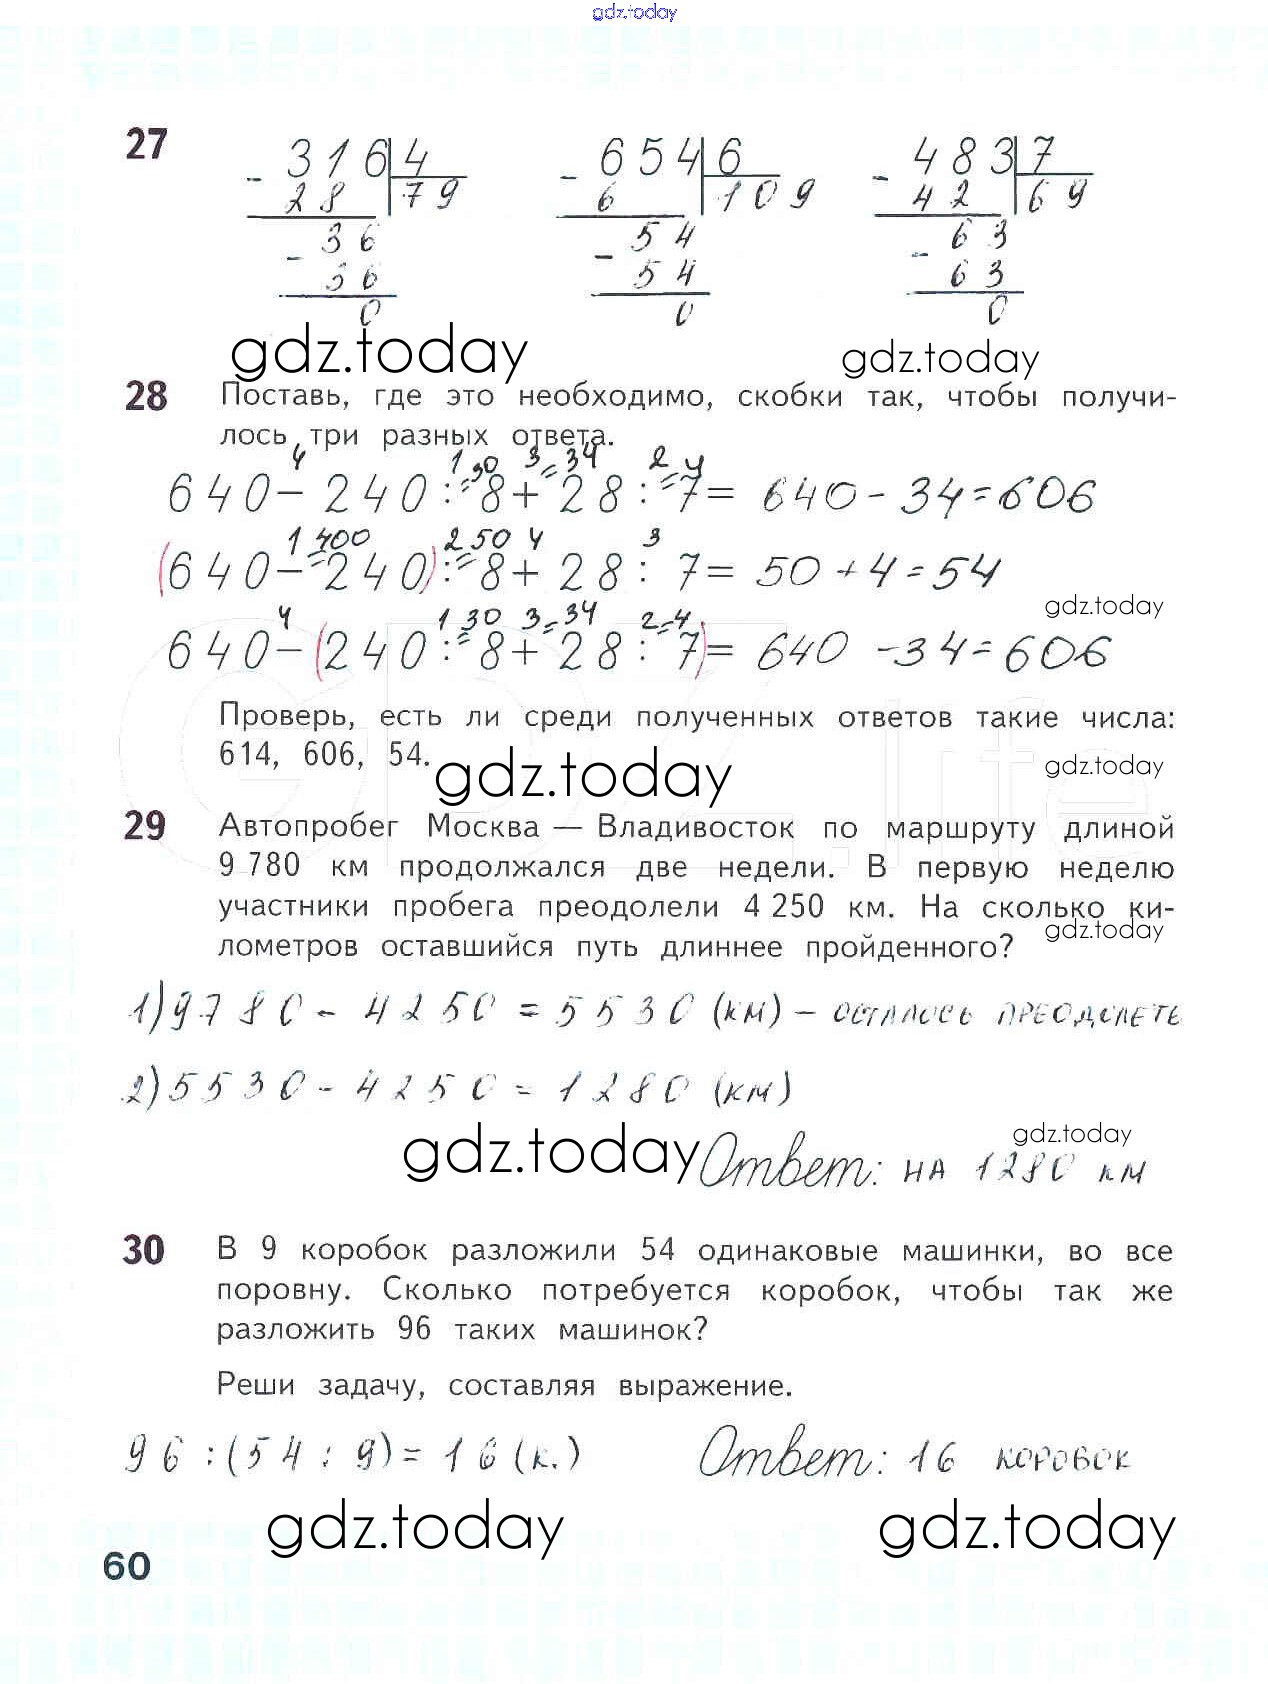 gdz.today
27
- 316|4 - 654|6 - 483|7
28 |79 6 |109 42 |69
- 36 - 54 - 63
36 54 63
0 0 0
gdz.today gdz.today
28 Поставь, где это необходимо, скобки так, чтобы получи-
лось три разных ответа.
4 1 =30 3 =34 2 =4
640-240:8+28:7= 640-34=606
1 =400 2 =50 4 3
(640-240):8+28:7= 50+4=54
gdz.today
4 1 =30 3 =34 2 =4
640-(240:8+28:7)= 640-34=606
Проверь, есть ли среди полученных ответов такие числа:
614, 606, 54.
gdz.today gdz.today
GDZ.life
29 Автопробег Москва — Владивосток по маршруту длиной
9 780 км продолжался две недели. В первую неделю
участники пробега преодолели 4 250 км. На сколько ки-
gdz.today
лометров оставшийся путь длиннее пройденного?
1)9780-4250=5530(км)-осталось преодолеть
2)5530-4250=1280(км)
gdz.today gdz.today
Ответ: на 1280 км
30 В 9 коробок разложили 54 одинаковые машинки, во все
поровну. Сколько потребуется коробок, чтобы так же
разложить 96 таких машинок?
Реши задачу, составляя выражение.
96:(54:9)=16(к.) Ответ: 16 коробок
gdz.today gdz.today
60